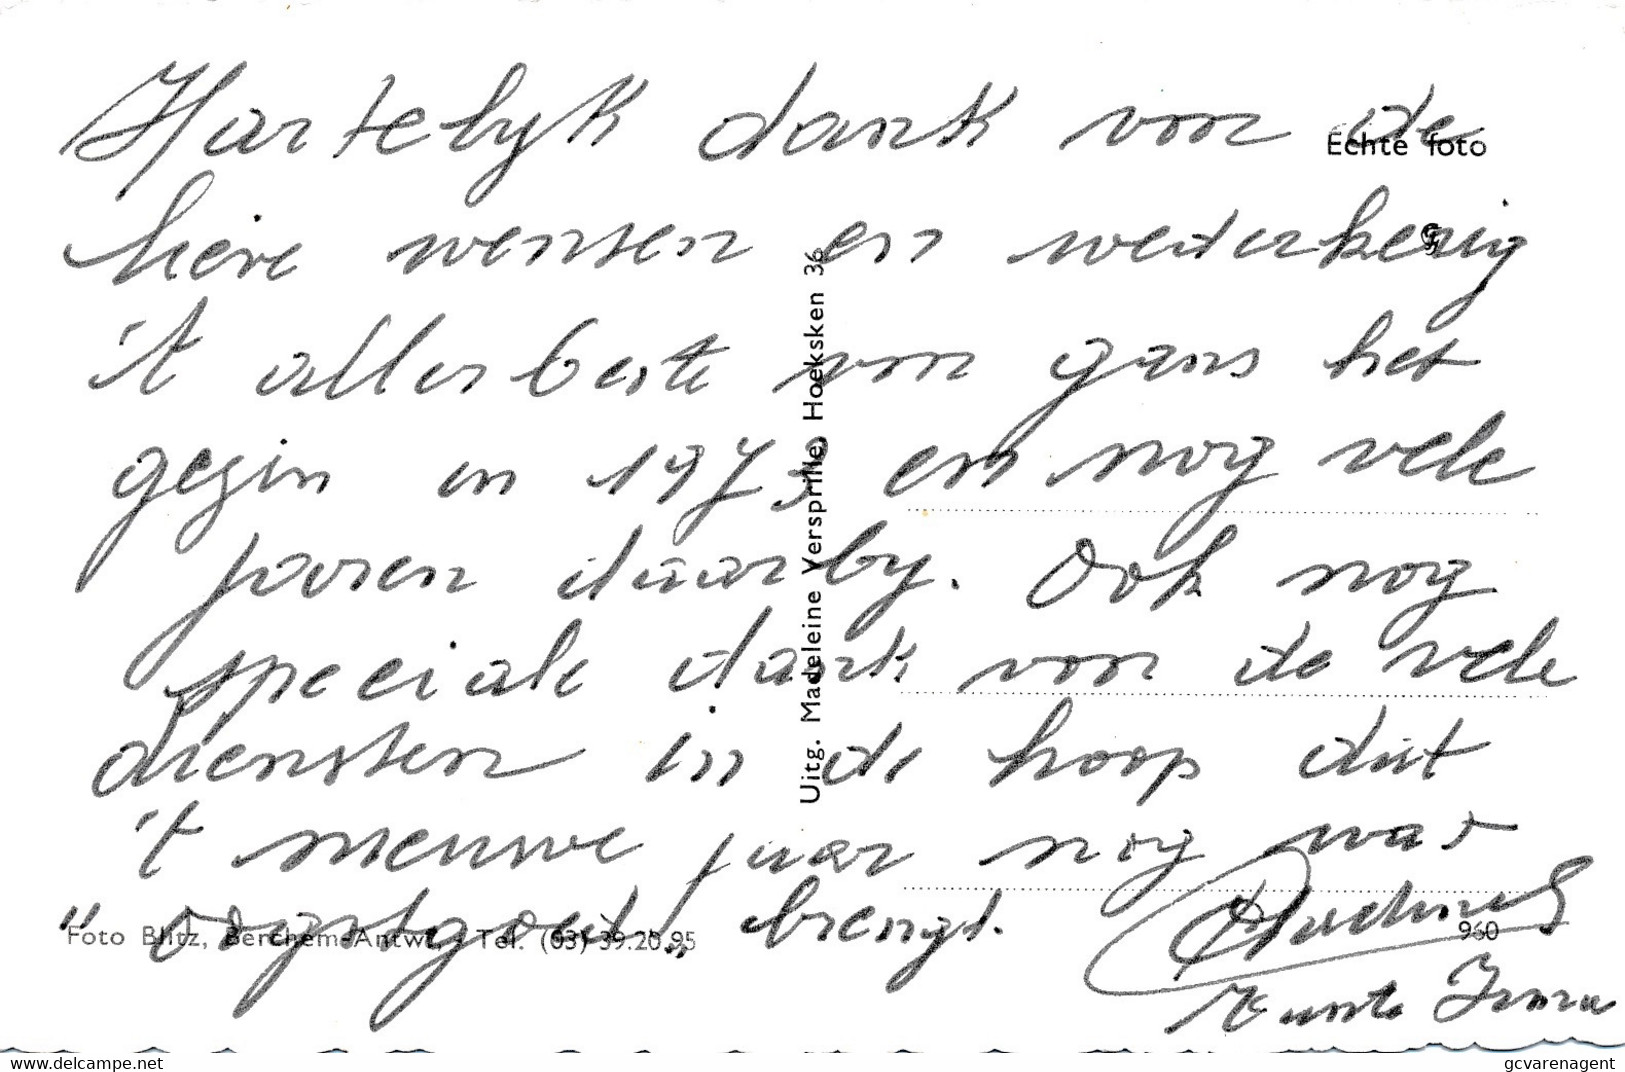 Hartelyk dank von de
Echte foto
lieve wensen en wederkerig
't allerbeste von gans het
gezin in 1973 en nog vele
joren daarby. Ook nog
speciale dank von de vele
diensten in de hoop dat
't nieuwe jaar nog wat
"oogstgoed" brengt.
Uitg. Madeleine Versprille, Hoeksken 36
Foto Blitz, Berchem-Antw., Tel. (03) 39.20.95
960
Irma
delcampe.net
gcvarenagent